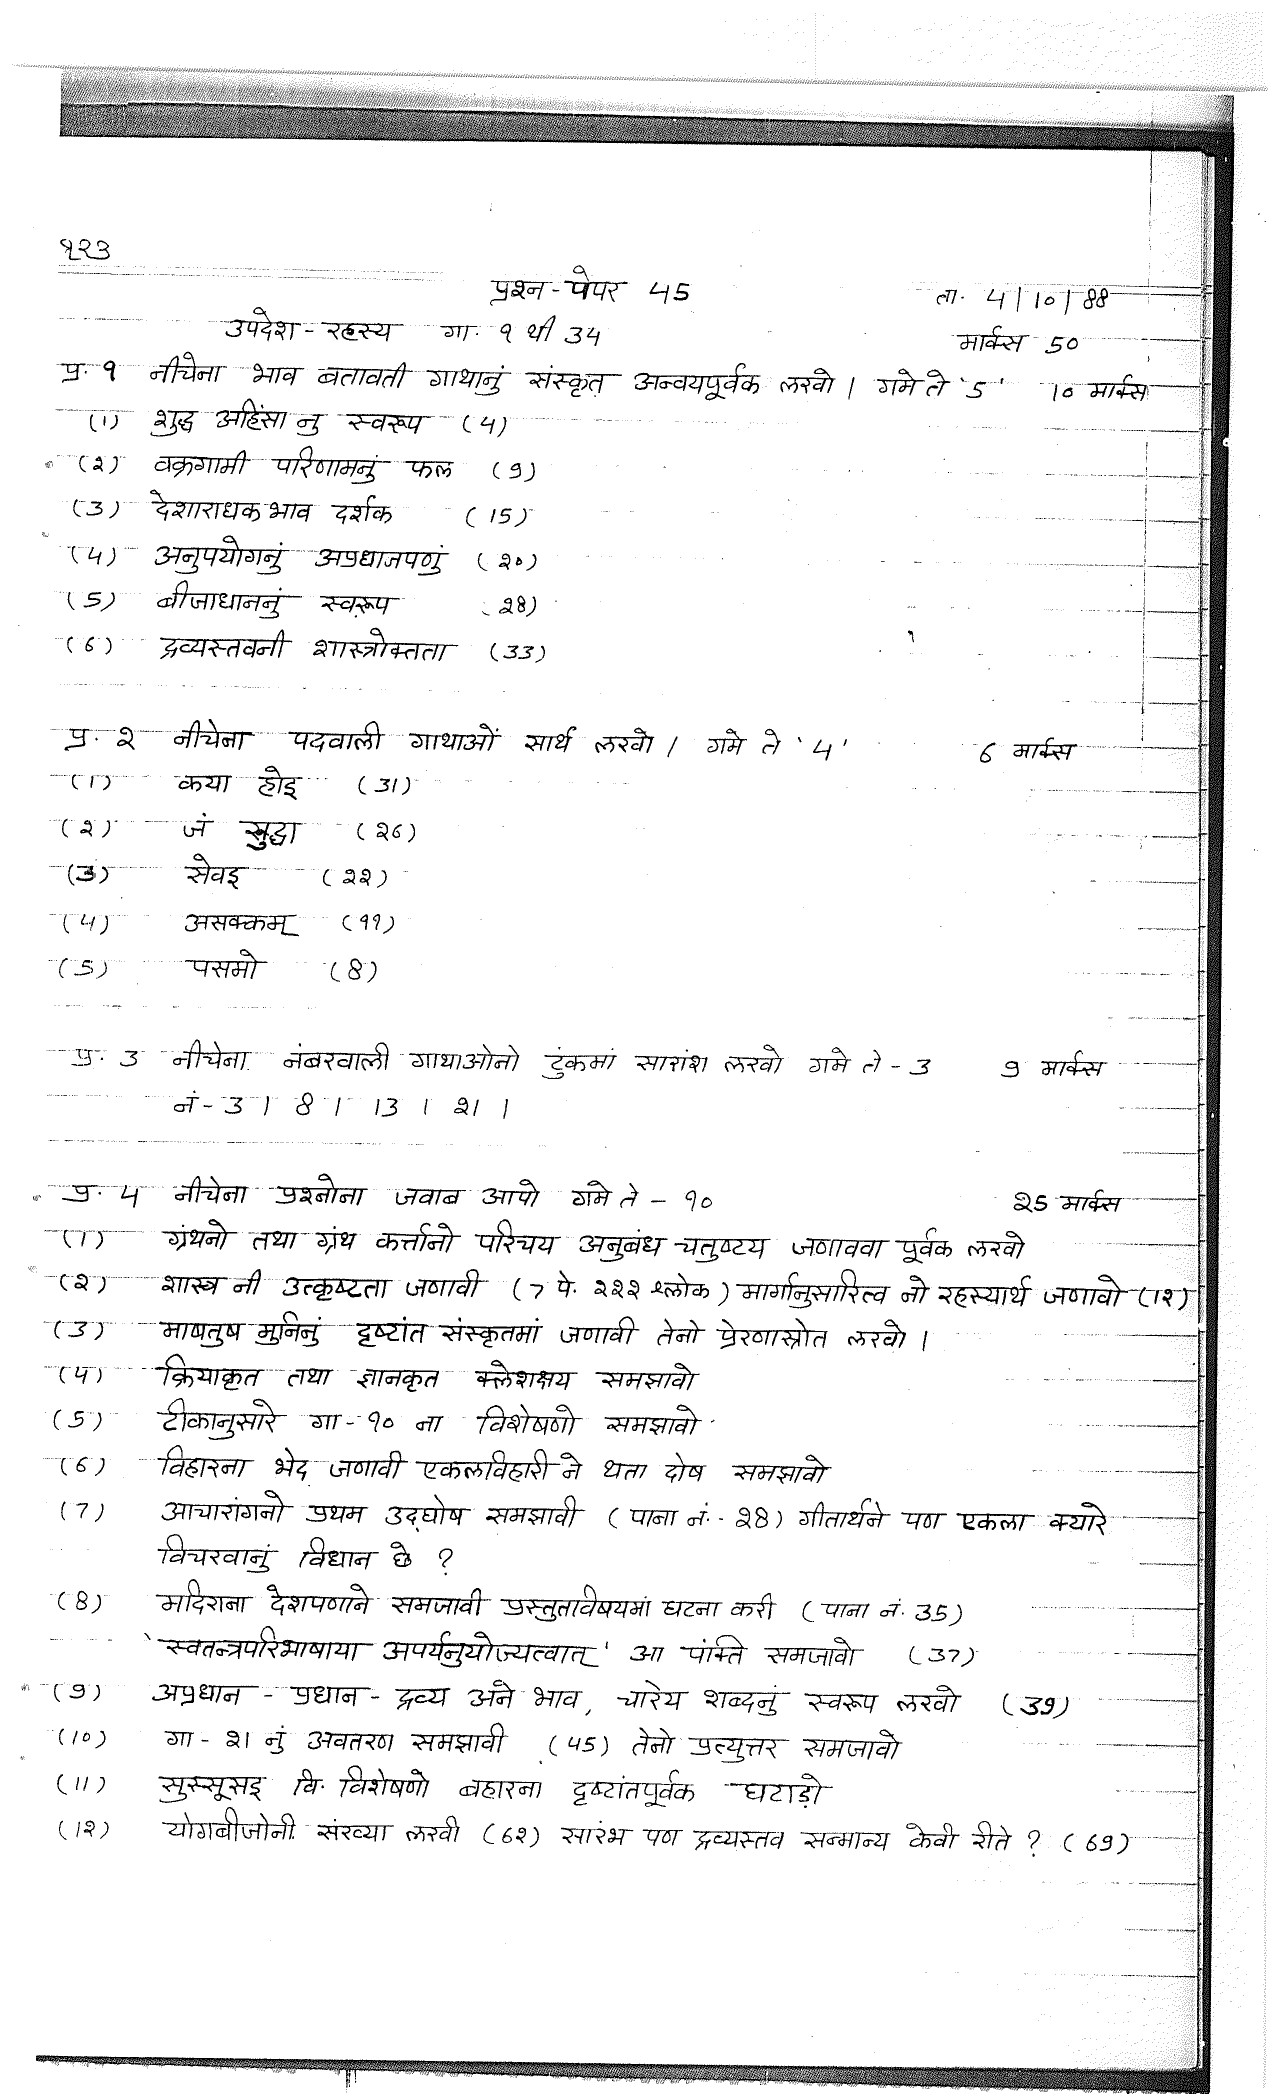 १२३
प्रश्न-पेपर 45 ता. 4/10/88
उपदेश-रहस्य गा. १ थी 34 मार्क्स 50
प्र. १ नीचेना भाव बतावती गाथानुं संस्कृत अन्वयपूर्वक लखो । गमे ते '5' 10 मार्क्स
(1) शुद्ध अहिंसा नु स्वरूप (4)
(२) वक्रगामी परिणामनुं फल (9)
(3) देशाराधक भाव दर्शक (15)
(4) अनुपयोगनुं अप्रधानपणुं (२०)
(5) बीजाधाननुं स्वरूप २8)
(6) द्रव्यस्तवनी शास्त्रोक्तता (33)
प्र. २ नीचेना पदवाली गाथाओं सार्थ लखो । गमे ते '4' 6 मार्क्स
(1) कया होइ (31)
(२) जं सुद्धा (२6)
(3) सेवइ (२२)
(4) असक्कम् (११)
(5) पसमो (8)
प्र. 3 नीचेना नंबरवाली गाथाओनो टुंकमां सारांश लखो गमे ते - 3 9 मार्क्स
नं - 3 । 8 । 13 । २1 ।
प्र. 4 नीचेना प्रश्नोना जवाब आपो गमे ते - १० २5 मार्क्स
(1) ग्रंथनो तथा ग्रंथ कर्त्तानो परिचय अनुबंध चतुष्टय जणाववा पूर्वक लखो
(२) शास्त्र नी उत्कृष्टता जणावी (7 पे. २२२ श्लोक) मार्गानुसारित्व नो रहस्यार्थ जणावो (1२)
(3) माषतुष मुनिनुं दृष्टांत संस्कृतमां जणावी तेनो प्रेरणास्रोत लखो ।
(4) क्रियाकृत तथा ज्ञानकृत क्लेशक्षय समझावो
(5) टीकानुसारे गा - १० ना विशेषणो समझावो
(6) विहारना भेद जणावी एकलविहारी ने थता दोष समझावो
(7) आचारांगनो प्रथम उद्घोष समझावी (पाना नं. - २8) गीतार्थने पण एकला क्यारे
विचरवानुं विधान छे ?
(8) मदिराना देशपणाने समजावी प्रस्तुतविषयमां घटना करी (पाना नं. 35)
'स्वतन्त्रपरिभाषाया अपर्यनुयोज्यत्वात्' आ पंक्ति समजावो (37)
(9) अप्रधान - प्रधान - द्रव्य अने भाव, चारेय शब्दनुं स्वरूप लखो (39)
(10) गा - २1 नुं अवतरण समझावी (45) तेनो प्रत्युत्तर समजावो
(11) सुस्सूसइ वि. विशेषणो बहारना दृष्टांतपूर्वक घटाड़ो
(1२) योगबीजोनी संख्या लखी (6२) सारंभ पण द्रव्यस्तव सन्मान्य केवी रीते ? (69)